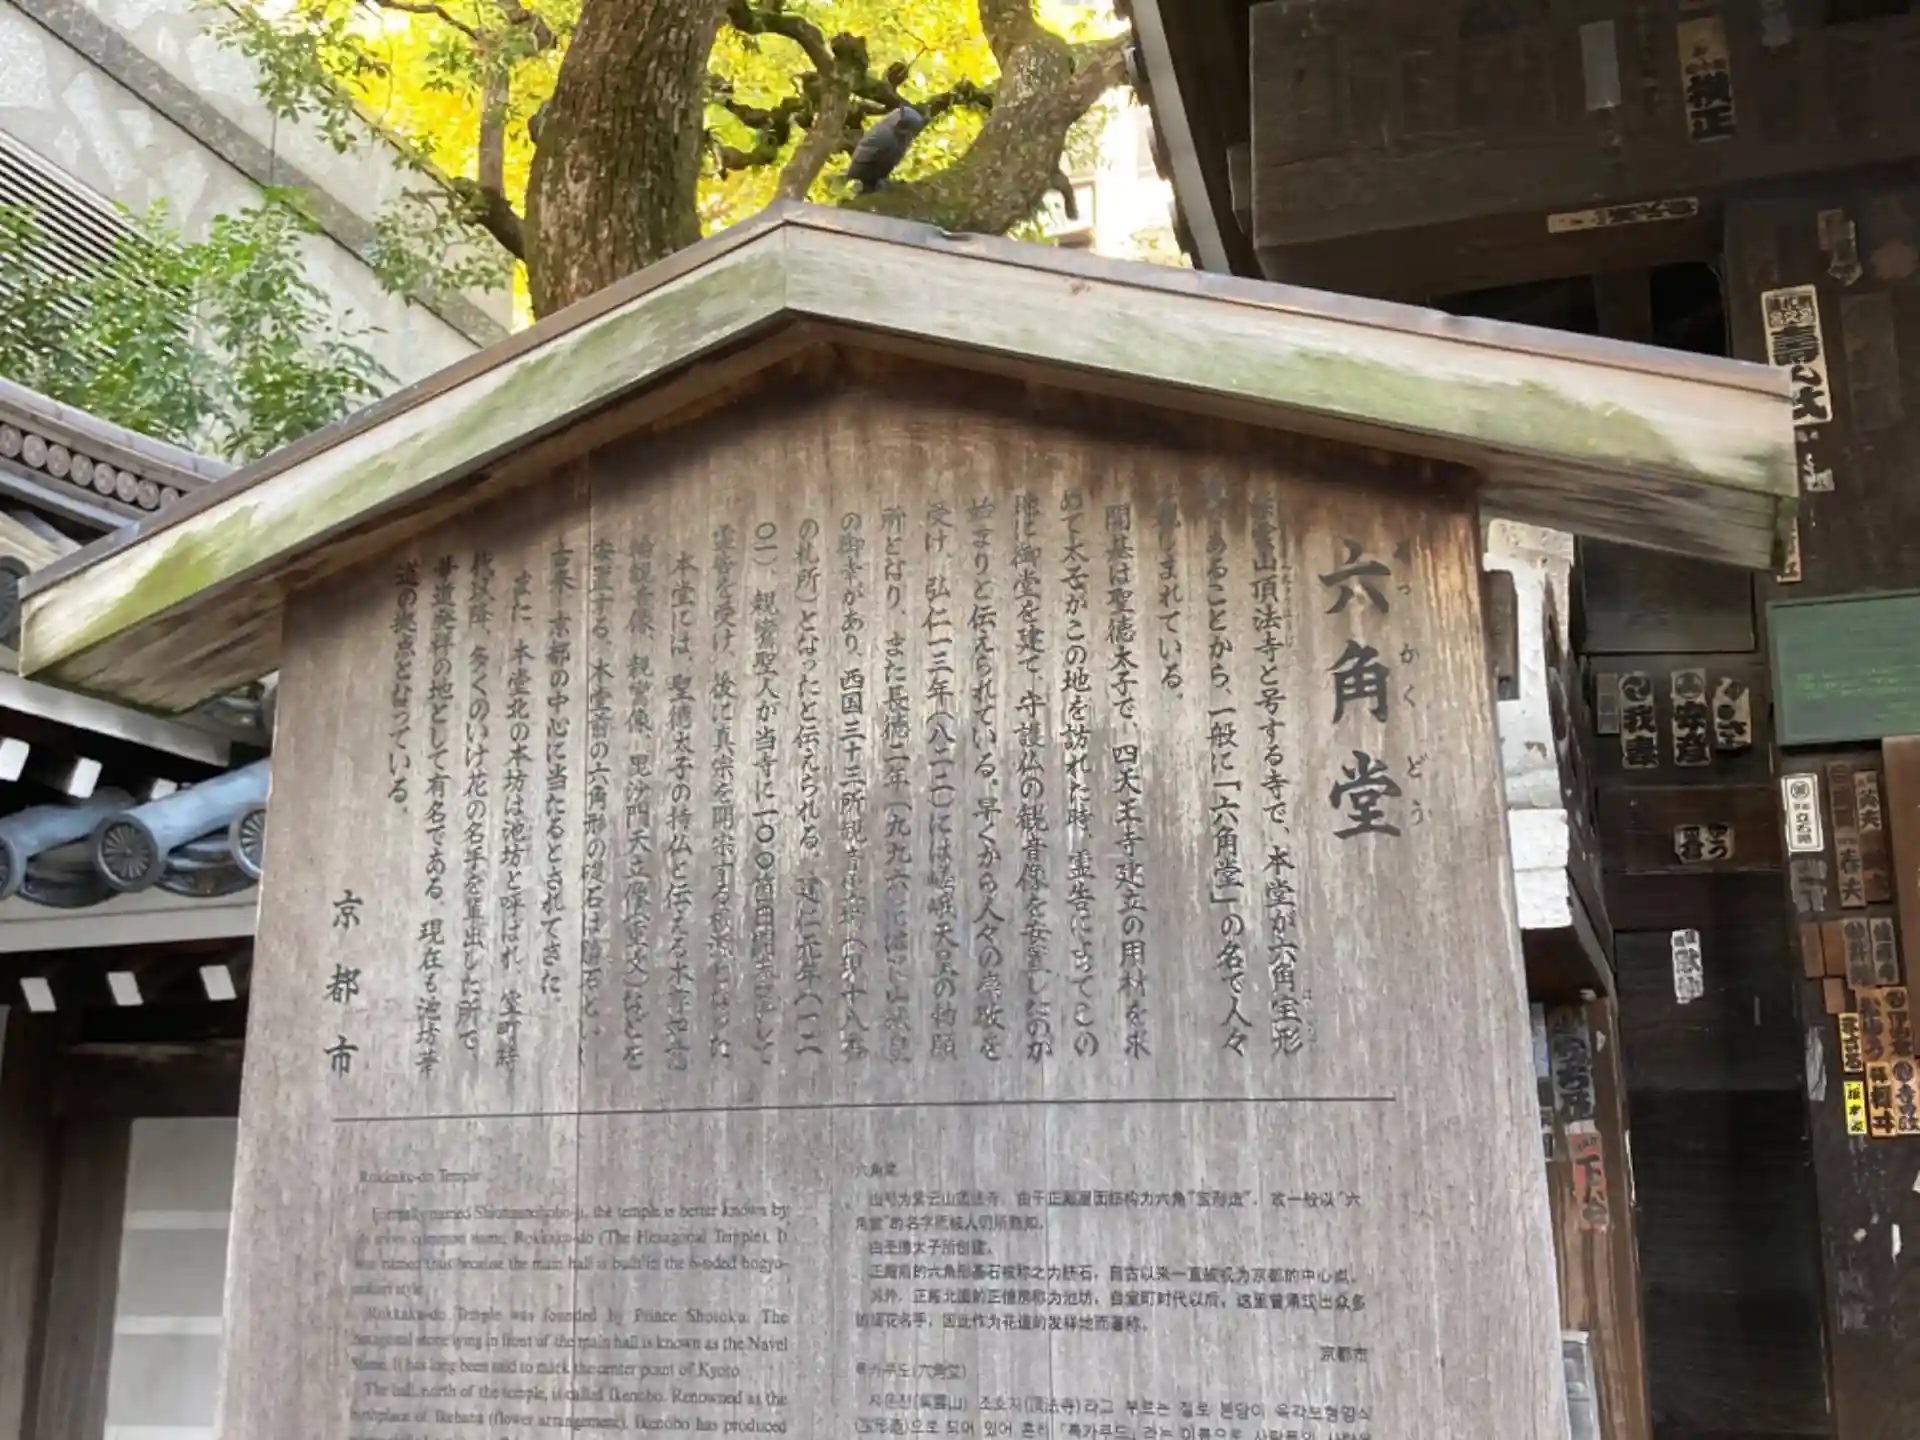 六角堂
ろっかくどう
紫雲山頂法寺と号する寺で、本堂が六角宝形
造であることから、一般に「六角堂」の名で人々
に親しまれている。
開基は聖徳太子で、四天王寺建立の用材を求
めて太子がこの地を訪れた時、霊告によってこの
地に御堂を建て、守護仏の観音像を安置したのが
始まりと伝えられている。早くから人々の崇敬を
受け、弘仁一三年(八二二)には嵯峨天皇の勅願
所となり、また長徳二年(九九六)には花山法皇
の御幸があり、西国三十三所観音霊場(現十八番
の札所)となったと伝えられる。建仁元年(一二
〇一)、親鸞聖人が当寺に一〇〇箇日間参籠して
霊告を受け、後に真宗を開宗する根源となった。
本堂には、聖徳太子の持仏と伝える本尊如意
輪観音像、親鸞像、毘沙門天立像(重文)などを
安置する。本堂前の六角形の礎石は臍石といい、
古来、京都の中心に当たるとされてきた。
また、本堂北の本坊は池坊と呼ばれ、室町時
代以降、多くのいけ花の名手を輩出した所で、
華道発祥の地として有名である。現在も池坊華
道の拠点となっている。
京都市
Rokkaku-do Temple
Formally named Shiunzanchoho-ji, the temple is better known by
its more common name, Rokkaku-do (The Hexagonal Temple). It
was named thus because the main hall is built in the 6-sided hogyo-
zukuri style.
Rokkaku-do Temple was founded by Prince Shotoku. The
hexagonal stone lying in front of the main hall is known as the Navel
Stone. It has long been said to mark the center point of Kyoto
The hall, north of the temple, is called Ikenobo. Renowned as the
birthplace of Ikebana (flower arrangement), Ikenobo has produced
六角堂
山号为紫云山顶法寺。由于正殿屋面结构为六角“宝形造”，故一般以“六
角堂”的名字而被人们所熟知。
由圣德太子所创建。
正殿前的六角形基石被称之为脐石，自古以来一直被视为京都的中心点。
另外，正殿北面的正僧房称为池坊，自室町时代以后，这里曾涌现出众多
的插花名手，因此作为花道的发祥地而著称。
京都市
록카쿠도(六角堂)
시운잔(紫雲山) 조호지(頂法寺)라고 부르는 절로 본당이 육각보형양식
(宝形造)으로 되어 있어 흔히 「록카쿠도」라는 이름으로